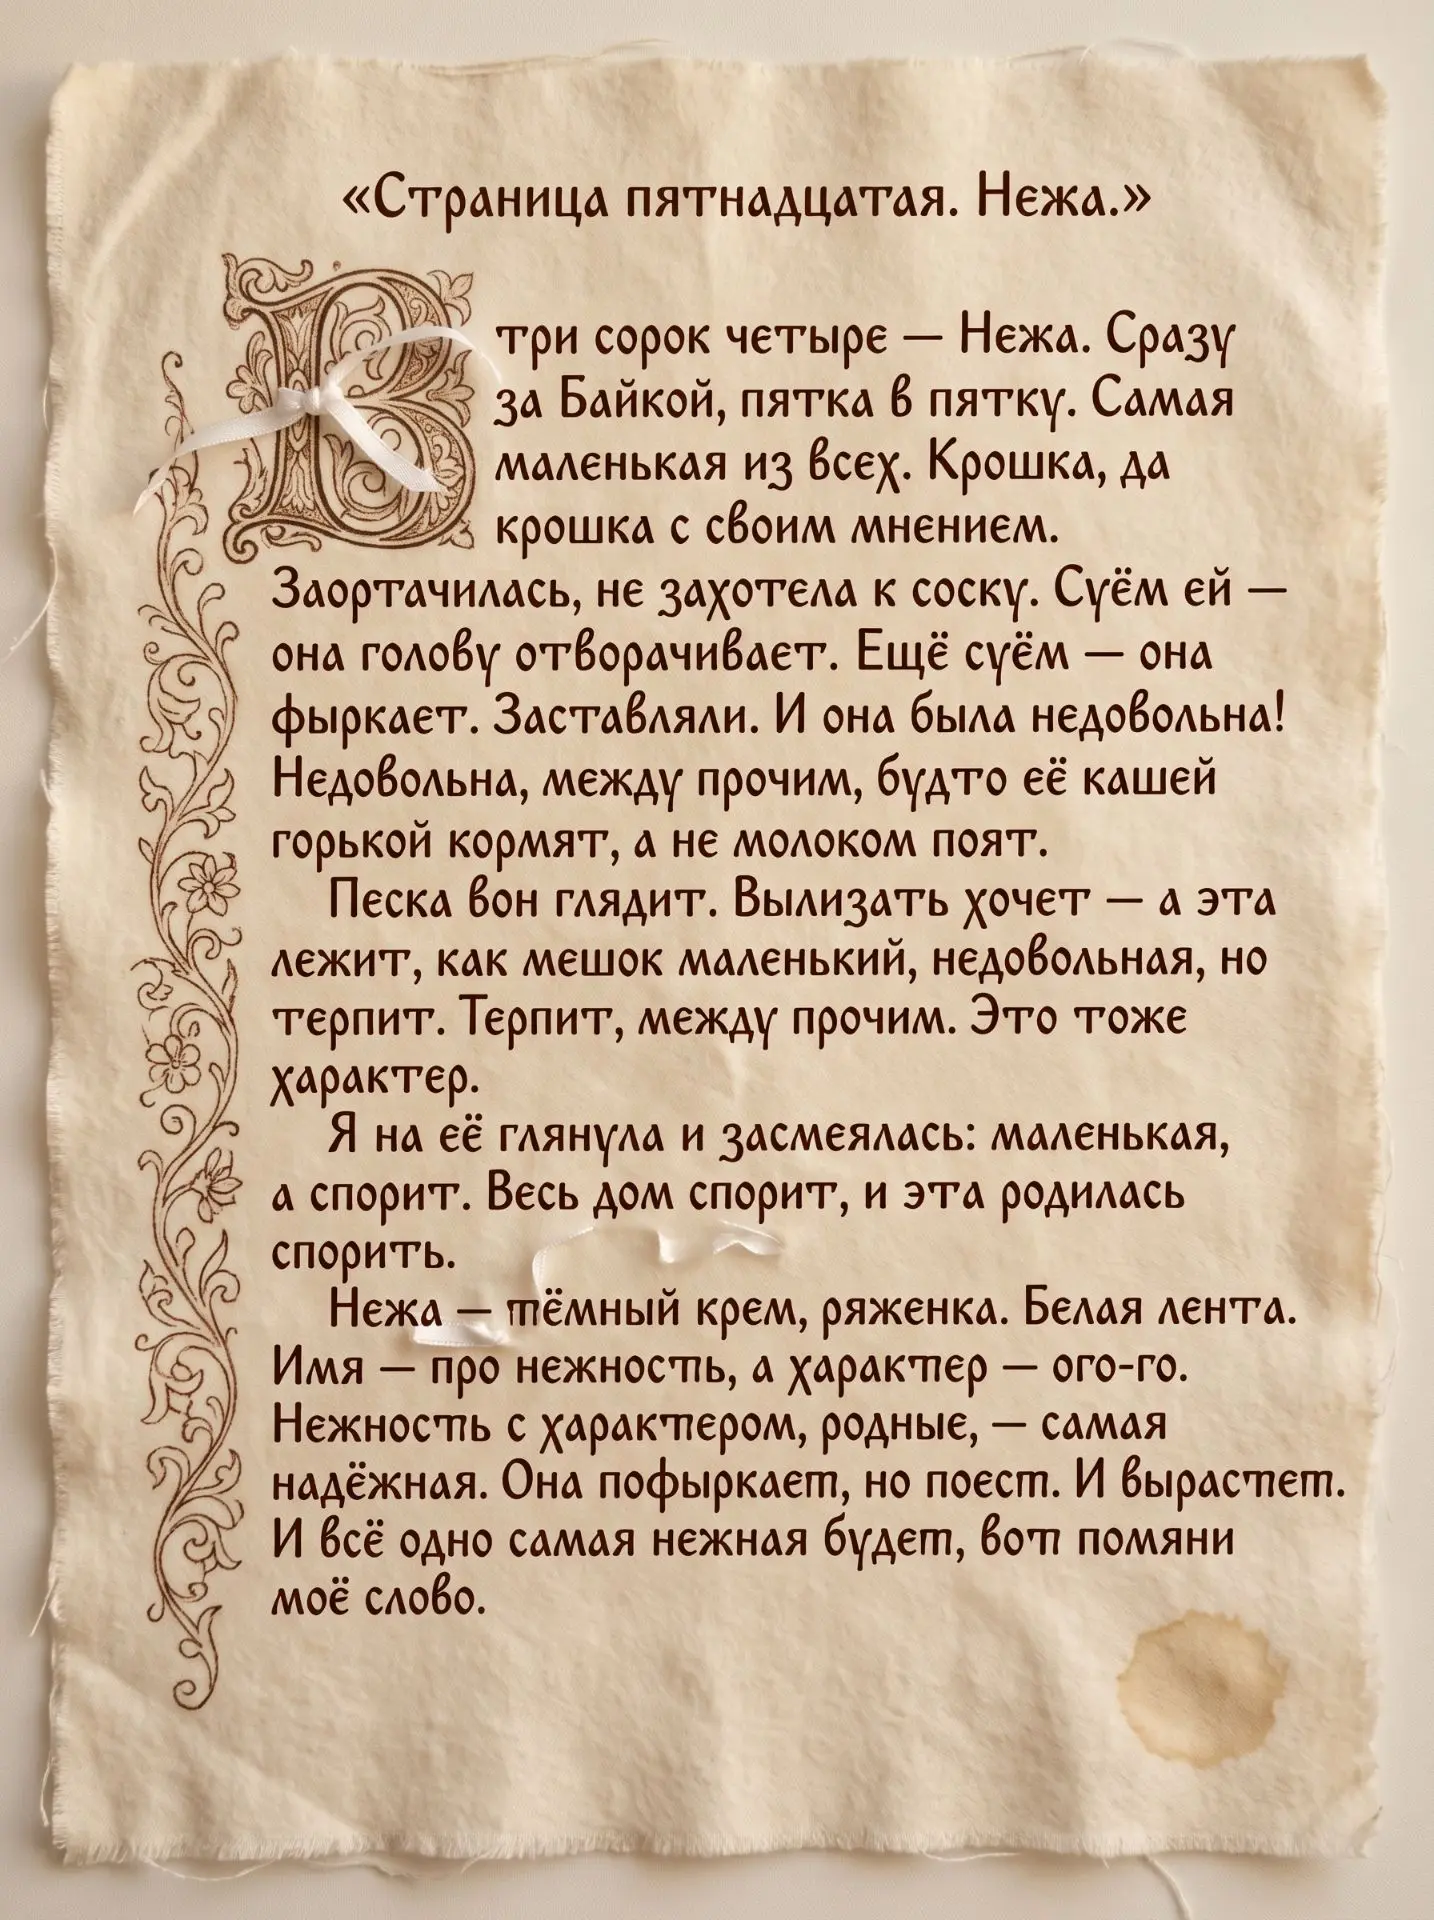 «Страница пятнадцатая. Нежа.»
В три сорок четыре — Нежа. Сразу
за Байкой, пятка в пятку. Самая
маленькая из всех. Крошка, да
крошка с своим мнением.
Заортачилась, не захотела к соску. Суём ей —
она голову отворачивает. Ещё суём — она
фыркает. Заставляли. И она была недовольна!
Недовольна, между прочим, будто её кашей
горькой кормят, а не молоком поят.
Песка вон глядит. Вылизать хочет — а эта
лежит, как мешок маленький, недовольная, но
терпит. Терпит, между прочим. Это тоже
характер.
Я на её глянула и засмеялась: маленькая,
а спорит. Весь дом спорит, и эта родилась
спорить.
Нежа — тёмный крем, ряженка. Белая лента.
Имя — про нежность, а характер — ого-го.
Нежность с характером, родные, — самая
надёжная. Она пофыркает, но поест. И вырастет.
И всё одно самая нежная будет, вот помяни
моё слово.